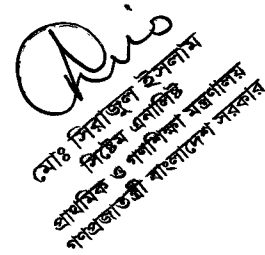 মোঃ সিরাজুল ইসলাম
সিস্টেম এনালিষ্ট
প্রাথমিক ও গণশিক্ষা মন্ত্রণালয়
গণপ্রজাতন্ত্রী বাংলাদেশ সরকার